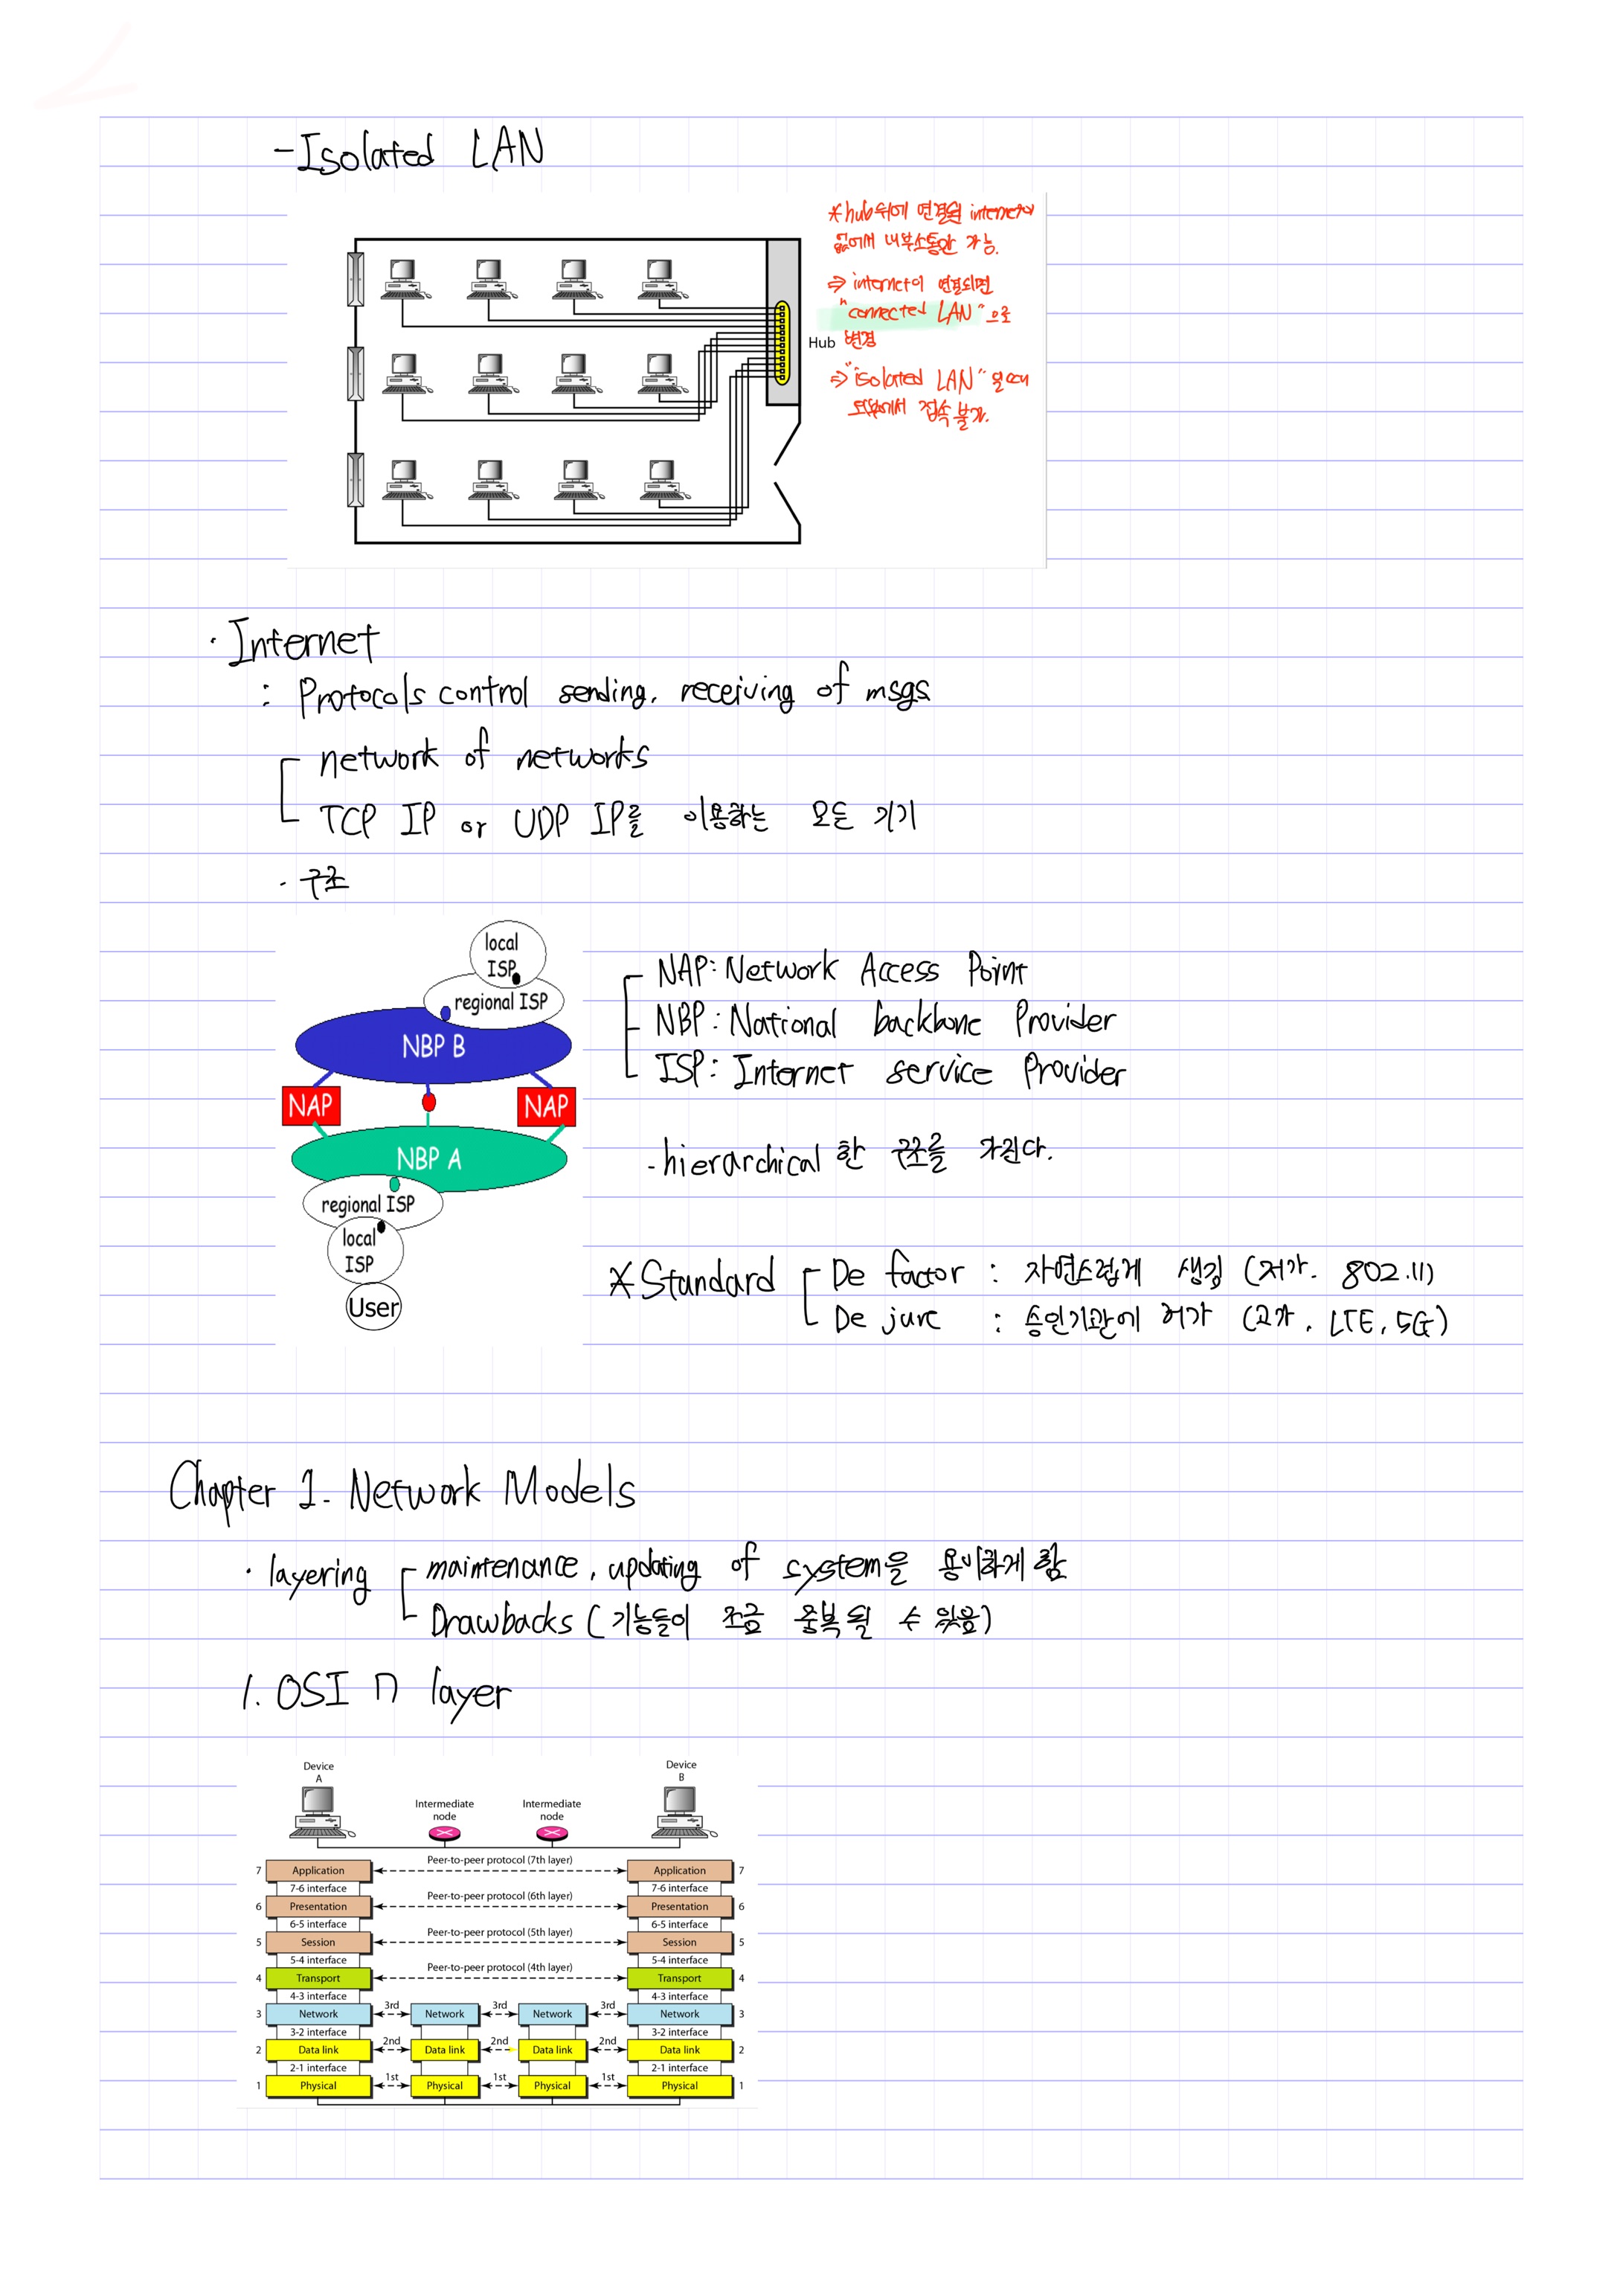 -Isolated LAN
*hub뒤에 연결된 internet이
없어서 내부소통만 가능.
⇒ internet이 연결되면
"connected LAN"으로
변경
⇒ "isolated LAN" 일때
외부에서 접속 불가.
Hub
· Internet
: Protocols control sending, receiving of msgs
network of networks
TCP IP or UDP IP를 이용하는 모든 기기
· 구조
local
ISP
regional ISP
NBP B
NAP
NAP
NBP A
regional ISP
local
ISP
User
NAP: Network Access Point
NBP: National backbone Provider
ISP: Internet service Provider
- hierarchical 한 구조를 가진다.
*Standard
De factor : 자연스럽게 생김 (저가. 802.11)
De jure : 승인기관에 허가 (고가, LTE, 5G)
Chapter 1. Network Models
· layering
maintenance, updating of system을 용이하게 함
Drawbacks (기능들이 조금 중복될 수 있음)
1. OSI 7 layer
Device
A
Device
B
Intermediate
node
Intermediate
node
7 Application Peer-to-peer protocol (7th layer) Application 7
7-6 interface 7-6 interface
6 Presentation Peer-to-peer protocol (6th layer) Presentation 6
6-5 interface 6-5 interface
5 Session Peer-to-peer protocol (5th layer) Session 5
5-4 interface 5-4 interface
4 Transport Peer-to-peer protocol (4th layer) Transport 4
4-3 interface 4-3 interface
3 Network 3rd Network 3rd Network 3rd Network 3
3-2 interface 3-2 interface
2 Data link 2nd Data link 2nd Data link 2nd Data link 2
2-1 interface 2-1 interface
1 Physical 1st Physical 1st Physical 1st Physical 1